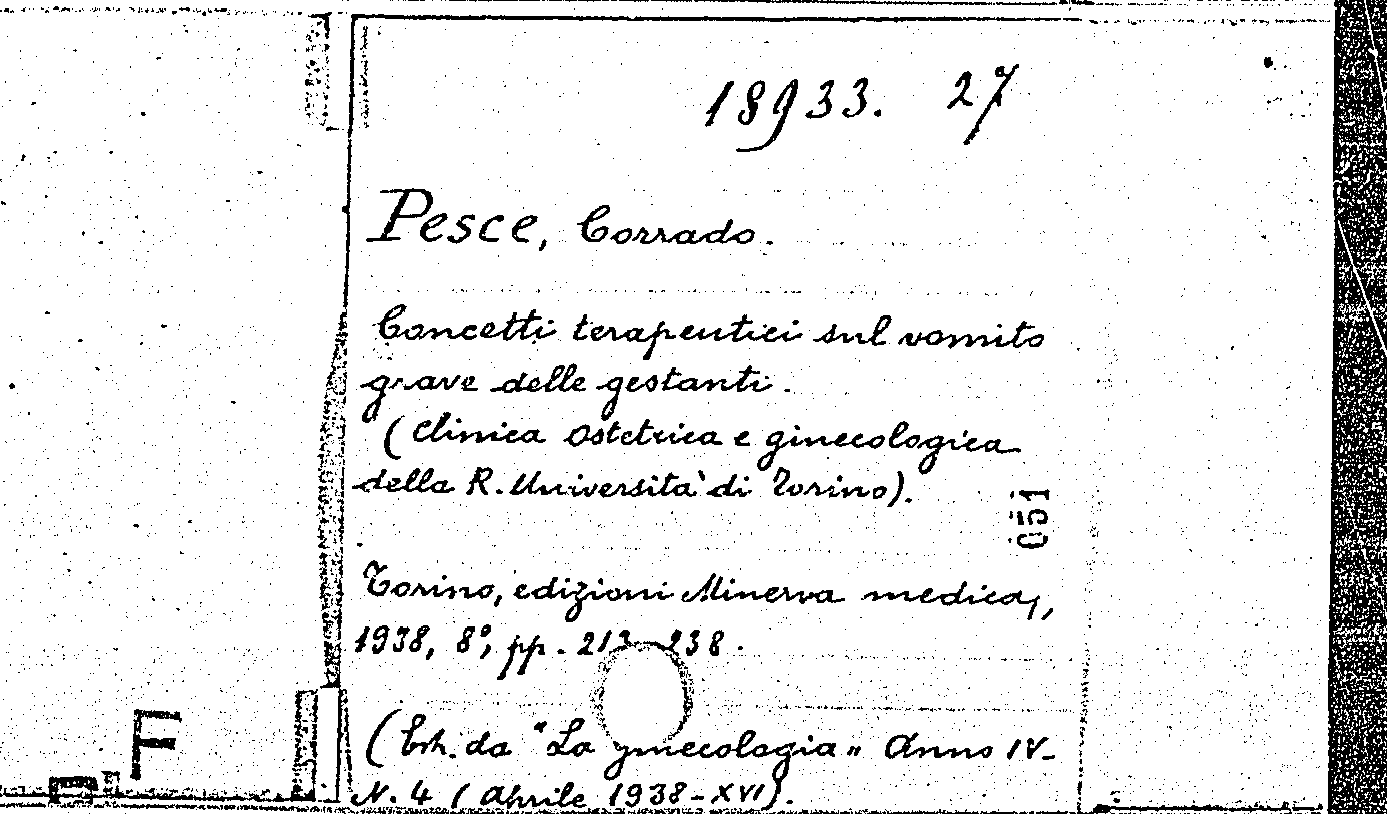 18933. 27
Pesce, Corrado.
Concetti terapeutici sul vomito
grave delle gestanti.
(Clinica Ostetrica e ginecologica
della R. Università di Torino).
051
Torino, edizioni Minerva medica,
1938, 8°, pp. 213-238.
(Estr. da "La ginecologia" Anno IV-
N. 4 (Aprile 1938-XVI).
F